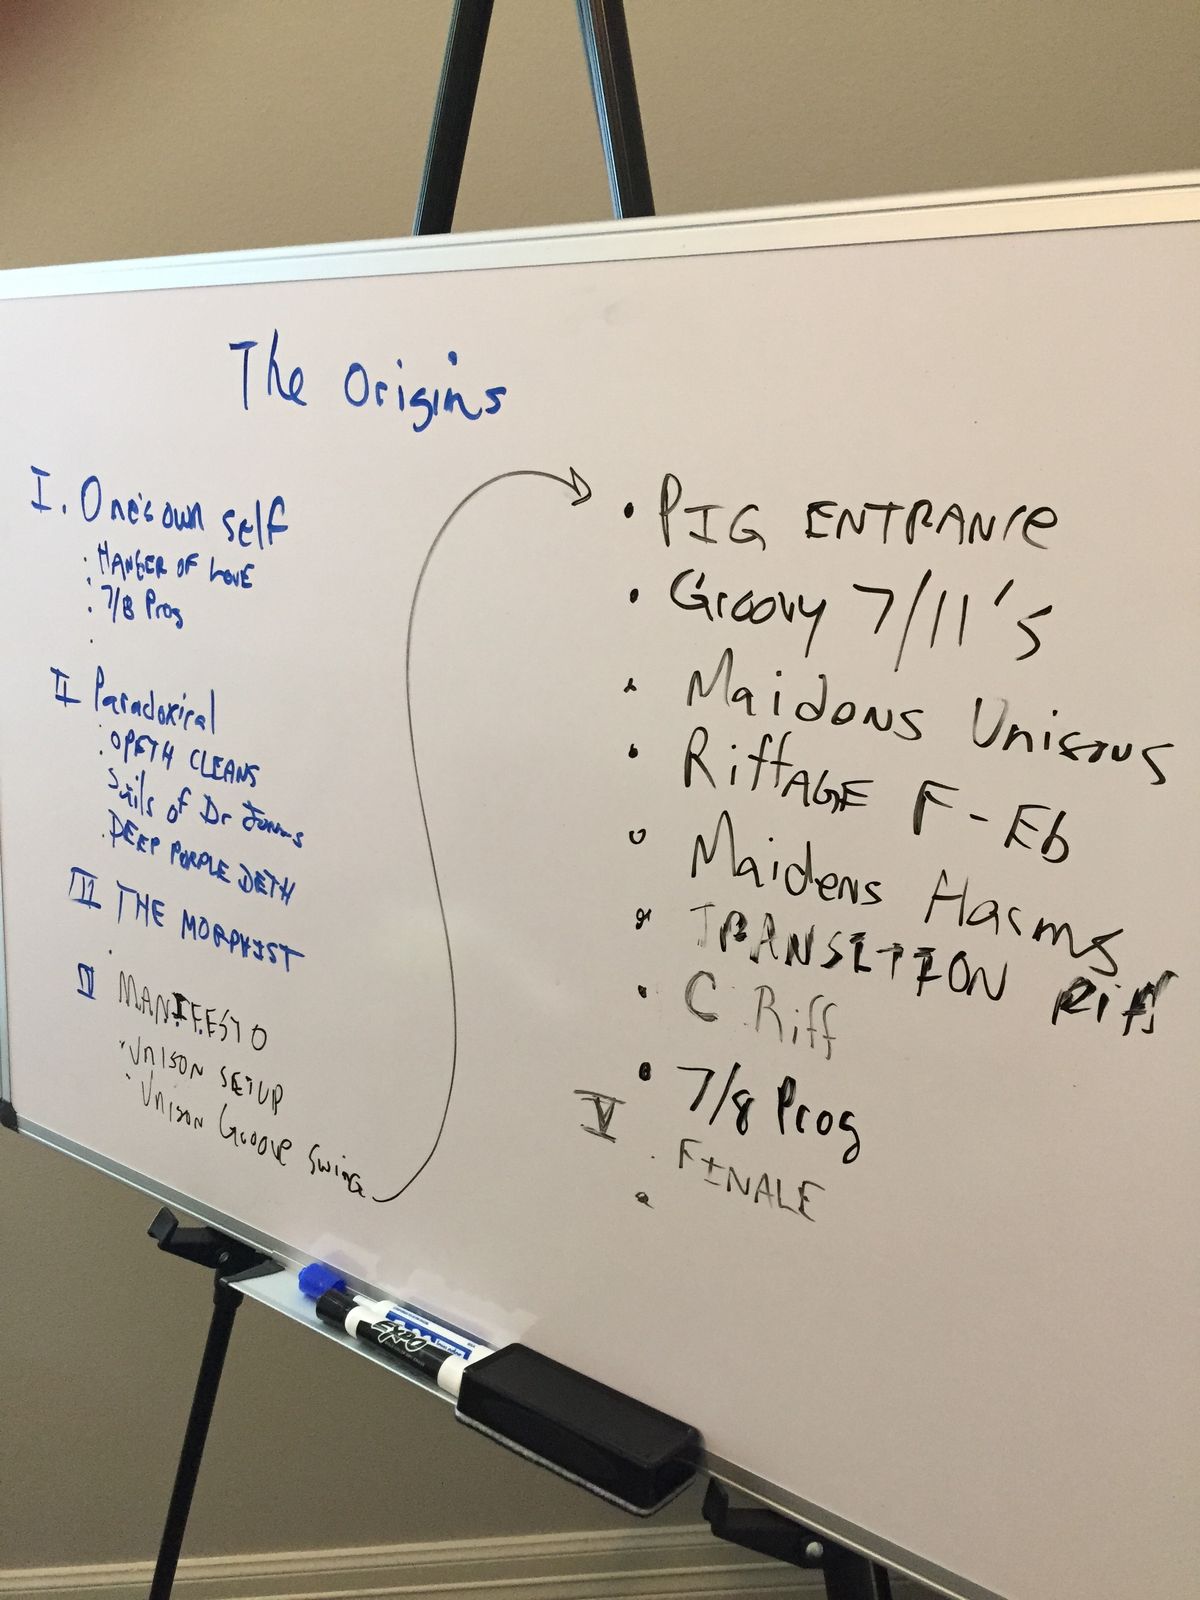 The Origins
I. One's own self
· HANGER OF LOVE
· 7/8 Prog
·
II Paradoxical
· OPETH CLEANS
of Dr
· DEEP PURPLE DETH
III THE MORPHIST
·
IV MANIFESTO
· UNISON SETUP
· UNISON GROOVE SWING
· PIG ENTRANCE
· Groovy 7/11's
· Maidons Unisons
· RiffAGE F-Eb
· Maidens Harms
· TRANSITION Riff
· C Riff
· 7/8 Prog
V
· FINALE
·
EXPO